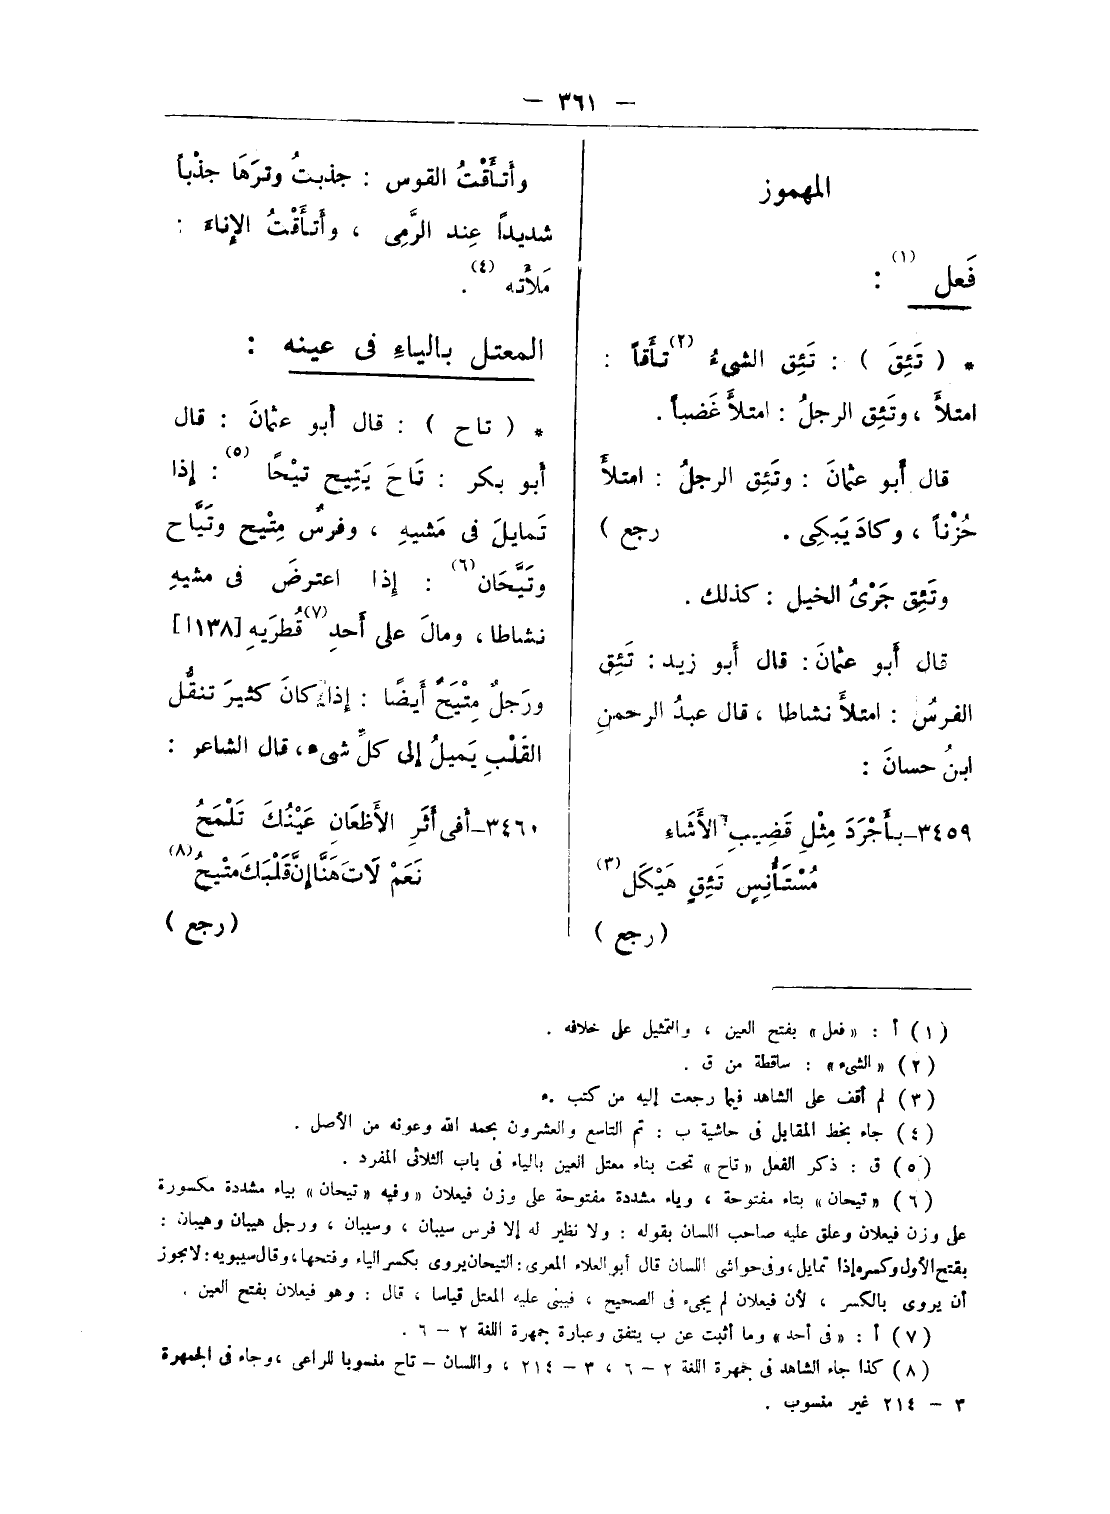 — ٣٦١ —
المهموز
فَعل (١) :
* ( تَئِقَ ) : تَئِق الشىءُ (٢) تـأَقاً :
امتلأَ ، وتَئِق الرجلُ : امتلأَ غَضباً .
قال أَبو عثمانَ : وتَئِق الرجلُ : امتلأَ
حُزْناً ، وكادَ يَبكِى . ( رجع
وتَئِق جَرْىُ الخيل : كذلك .
قال أَبو عثمانَ : قال أَبو زيد : تَئِق
الفرسُ : امتلأَ نشاطا ، قال عبدُ الرحمنِ
ابنُ حسانَ :
٣٤٥٩ـ بـأَجْرَدَ مِثْلِ قَضِيبِ الأَشَاء
مُسْتَأْنِسٍ تَئِقٍ هَيْكَل (٣)
( رجع )
وأَتـأَقْتُ القوس : جذبتُ وترَهَا جذْباً
شديداً عِند الرَّمِى ، وأَتـأَقْتُ الإِناءَ :
مَلأْته (٤) .
المعتل بـالياءِ فى عينه :
* ( تاح ) : قال أبو عثمانَ : قال
أبو بكر : تَاحَ يَتِيح تيْحًا (٥) : إذا
تَمايلَ فى مَشيهِ ، وفرسٌ مِتْيح وتَيَّاح
وتَيَّحَان (٦) : إِذا اعترضَ فى مشيهِ
نشاطا ، ومالَ على أَحدِ (٧) قُطرَيهِ [١٣٨أ]
ورَجلٌ مِتْيَحٌ أَيضًا : إِذا كانَ كثيرَ تنقُّل
القَلْبِ يَميلُ إلى كلِّ شىءٍ ، قال الشاعر :
٣٤٦٠ـ أفى أثَرِ الأَظعَانِ عَيْنُكَ تَلْمَحُ
نَعَمْ لَاتَ هَنَّا إِنَّ قَلْبَكَ مِتْيحُ (٨)
( رجع )
(١) أ : « فعل » بفتح العين ، والتمثيل على خلافه .
(٢) « الشىء » : ساقطة من ق .
(٣) لم أقف على الشاهد فيما رجعت إليه من كتب .
(٤) جاء بخط المقابل فى حاشية ب : تم التاسع والعشرون بحمد الله وعونه من الأصل .
(٥) ق : ذكر الفعل « تاح » تحت بناء معتل العين بالياء فى باب الثلاثى المفرد .
(٦) « تيحان » بتاء مفتوحة ، وياء مشددة مفتوحة على وزن فيعلان « وفيه « تيحان » بياء مشددة مكسورة
على وزن فيعلان وعلق عليه صاحب اللسان بقوله : ولا نظير له إلا فرس سيبان ، وسيبان ، ورجل هيبان وهيبان :
بفتح الأول وكسره إذا تمايل ، وفى حواشى اللسان قال أبو العلاء المعرى : التيحان يروى بكسر الياء وفتحها ، وقال سيبويه : لايجوز
أن يروى بالكسر ، لأن فيعلان لم يجىء فى الصحيح ، فيبنى عليه المعتل قياسا ، قال : وهو فيعلان بفتح العين .
(٧) أ : « فى أحد » وما أثبت عن ب يتفق وعبارة جمهرة اللغة ٢ – ٦ .
(٨) كذا جاء الشاهد فى جمهرة اللغة ٢ – ٦ ، ٣ – ٢١٤ ، واللسان – تاح منسوبا للراعى ، وجاء فى الجمهرة
٣ – ٢١٤ غير منسوب .